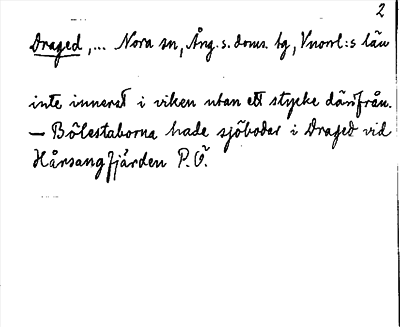 2
Draged, ... Nora sn, Ång. s. doms. tg, Vnorrl:s län
inte inneret i viken utan ett stycke därifrån.
— Bölestaborna hade sjöbodar i Draget vid
Hårsangfjärden P. Ö.